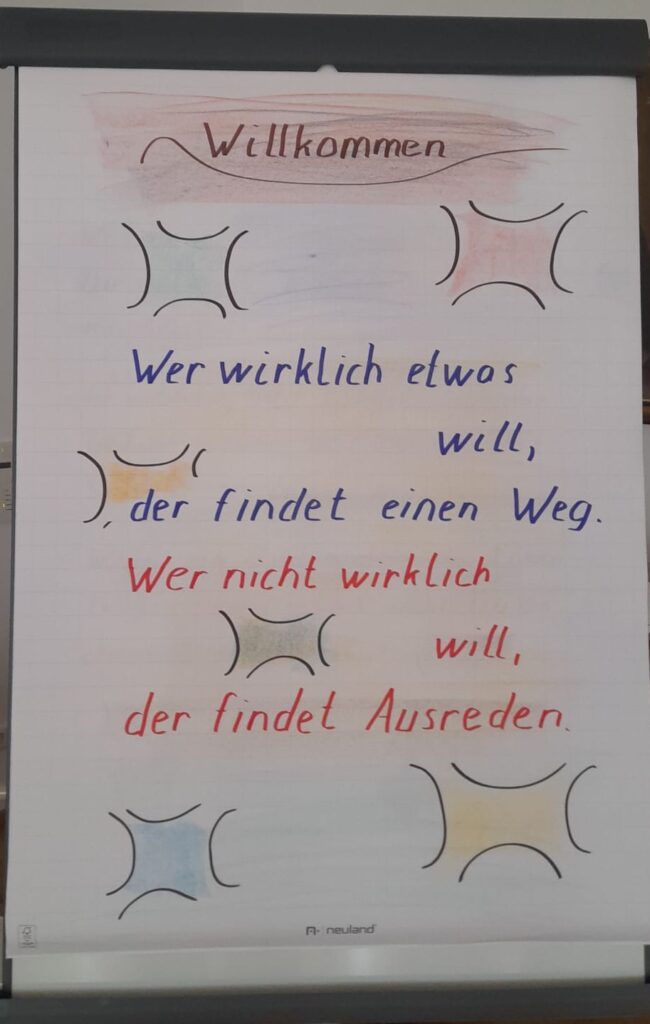 Willkommen
Wer wirklich etwas
will,
der findet einen Weg.
Wer nicht wirklich
will,
der findet Ausreden.
neuland